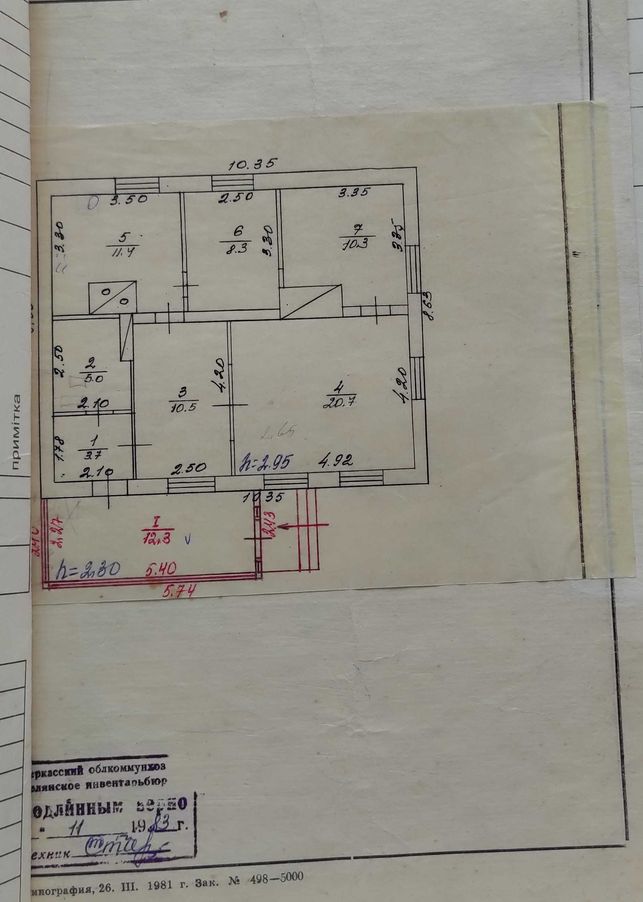 10.35
3.50
2.50
3.35
3.30
5
11.4
6
8.3
3.30
7
10.3
3.25
8.63
2.50
2
5.0
2.10
4.20
3
10.5
4
20.7
4.20
1.78
1
3.7
2.10
2.50
h=2.95
4.92
10.35
2.27
I
12.3
2.43
h=2.30
5.40
5.74
примітка
еркасский облкоммунхоз
лянское инвентарьбюро
одлинным верно
11 1983 г.
ехник
ипография, 26. III. 1981 г. Зак. № 498—5000